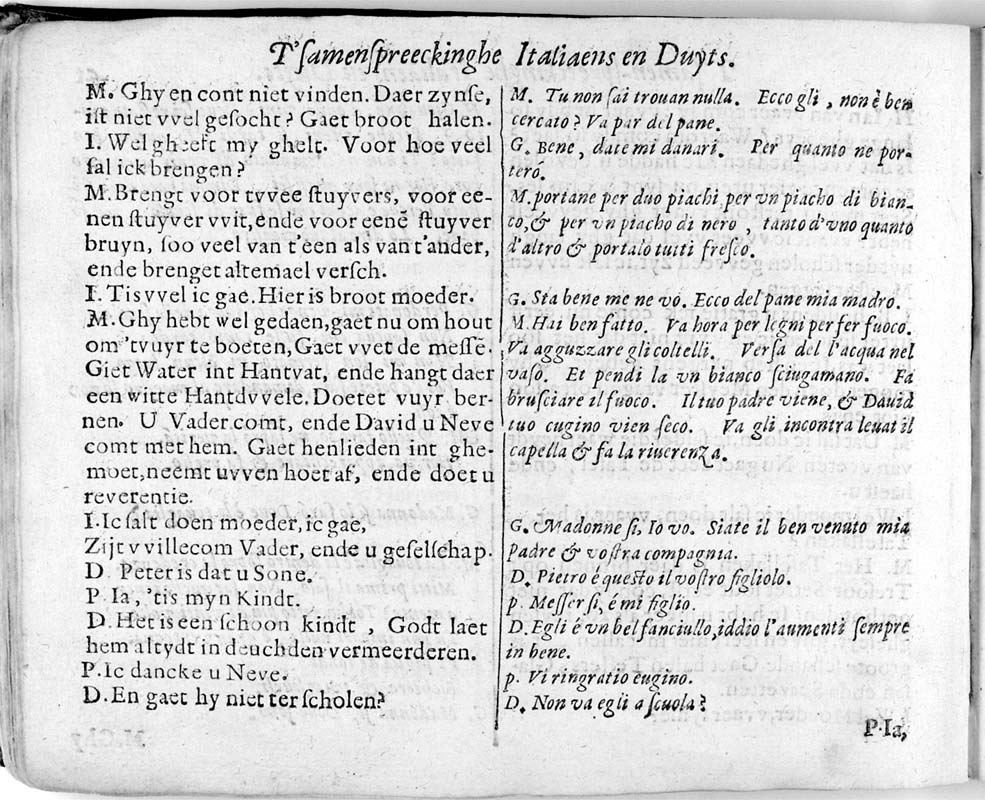 T'samenſpreeckinghe Italiaens en Duyts.
M. Ghy en cont niet vinden. Daer zynſe,
iſt niet vvel geſocht? Gaet broot halen.
I. Wel gheeft my ghelt. Voor hoe veel
ſal ick brengen?
M. Brengt voor tvvee ſtuyvers, voor ee-
nen ſtuyver vvit, ende voor eenē ſtuyver
bruyn, ſoo veel van t'een als van t'ander,
ende brenget altemael verſch.
I. Tis vvel ic gae. Hier is broot moeder.
M. Ghy hebt wel gedaen, gaet nu om hout
om 'tvuyr te boeten, Gaet vvet de meſſē.
Giet Water int Hantvat, ende hangt daer
een witte Hantdvvele. Doetet vuyr ber-
nen. U Vader comt, ende David u Neve
comt met hem. Gaet henlieden int ghe-
moet, neemt uvven hoet af, ende doet u
reverentie.
I. Ic ſalt doen moeder, ic gae,
Zijt vvillecom Vader, ende u geſelſchap.
D. Peter is dat u Sone.
P. Ia, 'tis myn Kindt.
D. Het is een ſchoon kindt, Godt laet
hem altydt in deuchden vermeerderen.
P. Ic dancke u Neve.
D. En gaet hy niet ter ſcholen?
M. Tu non ſai trouan nulla. Ecco gli, non è ben
cercato? Va par del pane.
G. Bene, date mi danari. Per quanto ne por-
terò.
M. portane per duo piachi, per vn piacho di bian-
co, & per vn piacho di nero, tanto d'vno quanto
d'altro & portalo tutti freſco.
G. Sta bene me ne vo. Ecco del pane mia madro.
M. Hai ben fatto. Va hora per legni per fer fuoco.
Va agguzzare gli coltelli. Verſa del l'acqua nel
vaſo. Et pendi la vn bianco ſciugamano. Fa
bruſciare il fuoco. Il tuo padre viene, & David
tuo cugino vien ſeco. Va gli incontra leuat il
capella & fa la riuerenza.
G. Madonne ſi, Io vo. Siate il ben venuto mia
Padre & voſtra compagnia.
D. Pietro é queſto il voſtro figliolo.
p. Meſſer ſi, é mi figlio.
D. Egli é vn bel fanciullo, iddio l'aumenti ſempre
in bene.
p. Vi ringratio cugino.
D. Non va egli a ſcuola?
P. Ia,